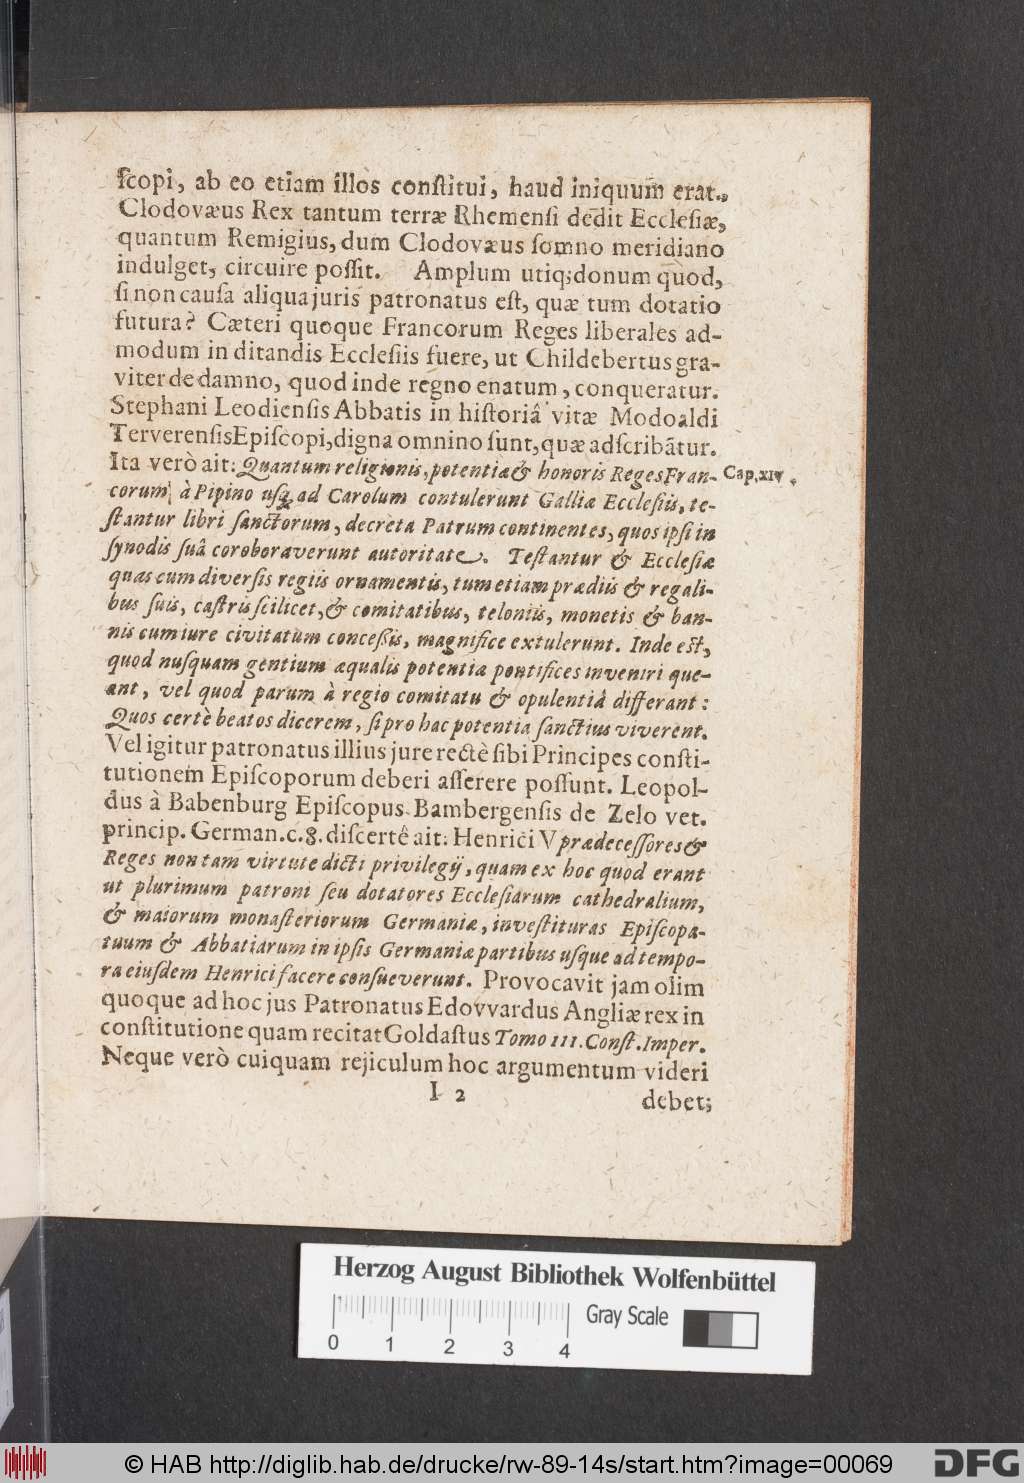 ſcopi, ab eo etiam illos conſtitui, haud iniquum erat.,
Clodovæus Rex tantum terræ Rhemenſi dedit Eccleſiæ,
quantum Remigius, dum Clodovæus ſomno meridiano
indulget, circuire poſſit. Amplum utiq; donum quod,
ſi non cauſa aliqua juris patronatus eſt, quæ tum dotatio
futura? Cæteri quoque Francorum Reges liberales ad-
modum in ditandis Eccleſiis fuere, ut Childebertus gra-
viter de damno, quod inde regno enatum, conqueratur.
Stephani Leodienſis Abbatis in hiſtoriâ vitæ Modoaldi
Terverenſis Epiſcopi, digna omnino ſunt, quæ adſcribãtur.
Ita verò ait: Quantum religionis, potentiæ & honoris Reges Fran-
Cap. XIV.
corum à Pipino uſq; ad Carolum contulerunt Galliæ Eccleſiis, te-
ſtantur libri ſanctorum, decreta Patrum continentes, quos ipſi in
ſynodis ſuâ coroboraverunt autoritate. Teſtantur & Eccleſiæ
quas cum diverſis regiis ornamentis, tum etiam prædiis & regali-
bus ſuis, caſtris ſcilicet, & comitatibus, teloniis, monetis & ban-
nis cum iure civitatum conceßis, magnifice extulerunt. Inde eſt,
quod nuſquam gentium æqualis potentia pontifices inveniri que-
ant, vel quod parum à regio comitatu & opulentiâ differant:
Quos certè beatos dicerem, ſi pro hac potentia ſanctius viverent.
Vel igitur patronatus illius jure rectè ſibi Principes conſti-
tutionem Epiſcoporum deberi aſſerere poſſunt. Leopol-
dus à Babenburg Epiſcopus Bambergenſis de Zelo vet.
princip. German. c. 8. diſcertê ait: Henrici V prædeceſſores &
Reges non tam virtute dicti privilegij, quam ex hoc quod erant
ut plurimum patroni ſeu dotatores Eccleſiarum cathedralium,
& maiorum monaſteriorum Germaniæ, inveſtituras Epiſcopa-
tuum & Abbatiarum in ipſis Germaniæ partibus uſque ad tempo-
ra eiuſdem Henrici facere conſueverunt. Provocavit jam olim
quoque ad hoc jus Patronatus Edovvardus Angliæ rex in
conſtitutione quam recitat Goldaſtus Tomo III. Conſt. Imper.
Neque verò cuiquam rejiculum hoc argumentum videri
I 2
debet;
Herzog August Bibliothek Wolfenbüttel
Gray Scale
0 1 2 3 4
© HAB http://diglib.hab.de/drucke/rw-89-14s/start.htm?image=00069
DFG